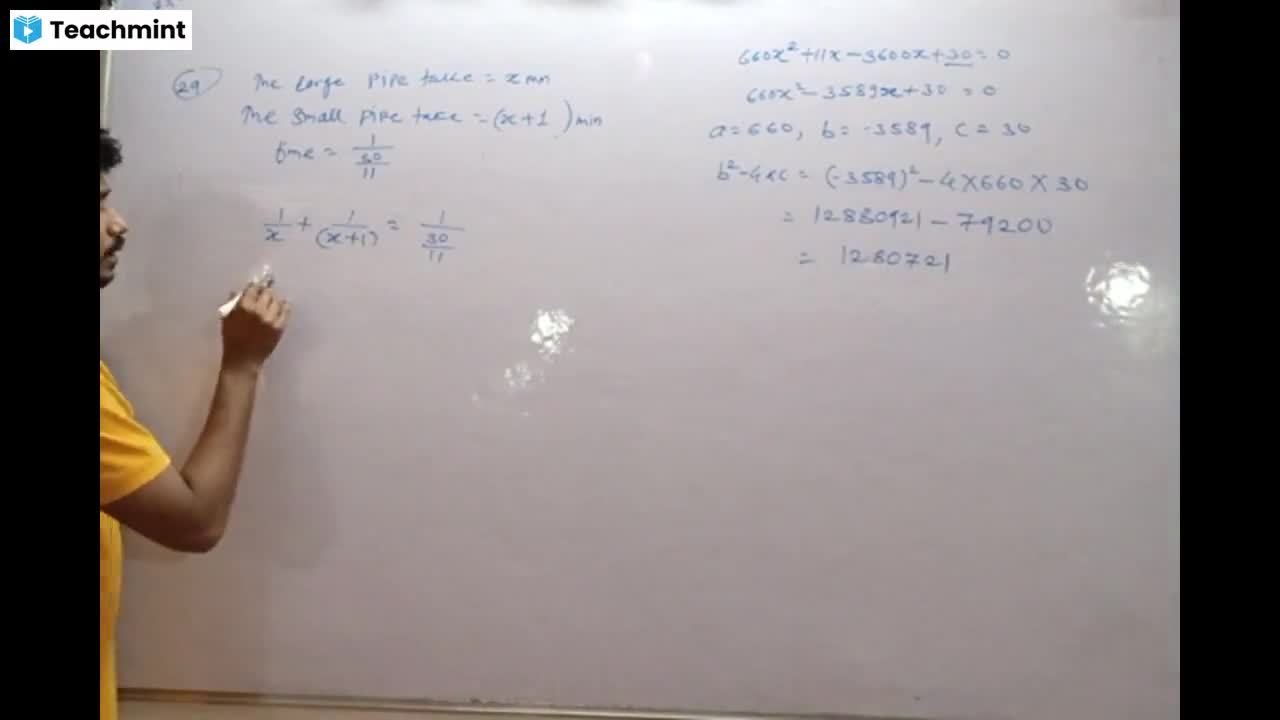 Teachmint
29 The large pipe take = x min
The small pipe take = (x+1) min
time = 1/(30/11)
1/x + 1/(x+1) = 1/(30/11)
660x² + 11x - 3600x + 30 = 0
660x² - 3589x + 30 = 0
a = 660, b = -3589, c = 30
b² - 4ac = (-3589)² - 4×660×30
= 12880921 - 79200
= 1280721